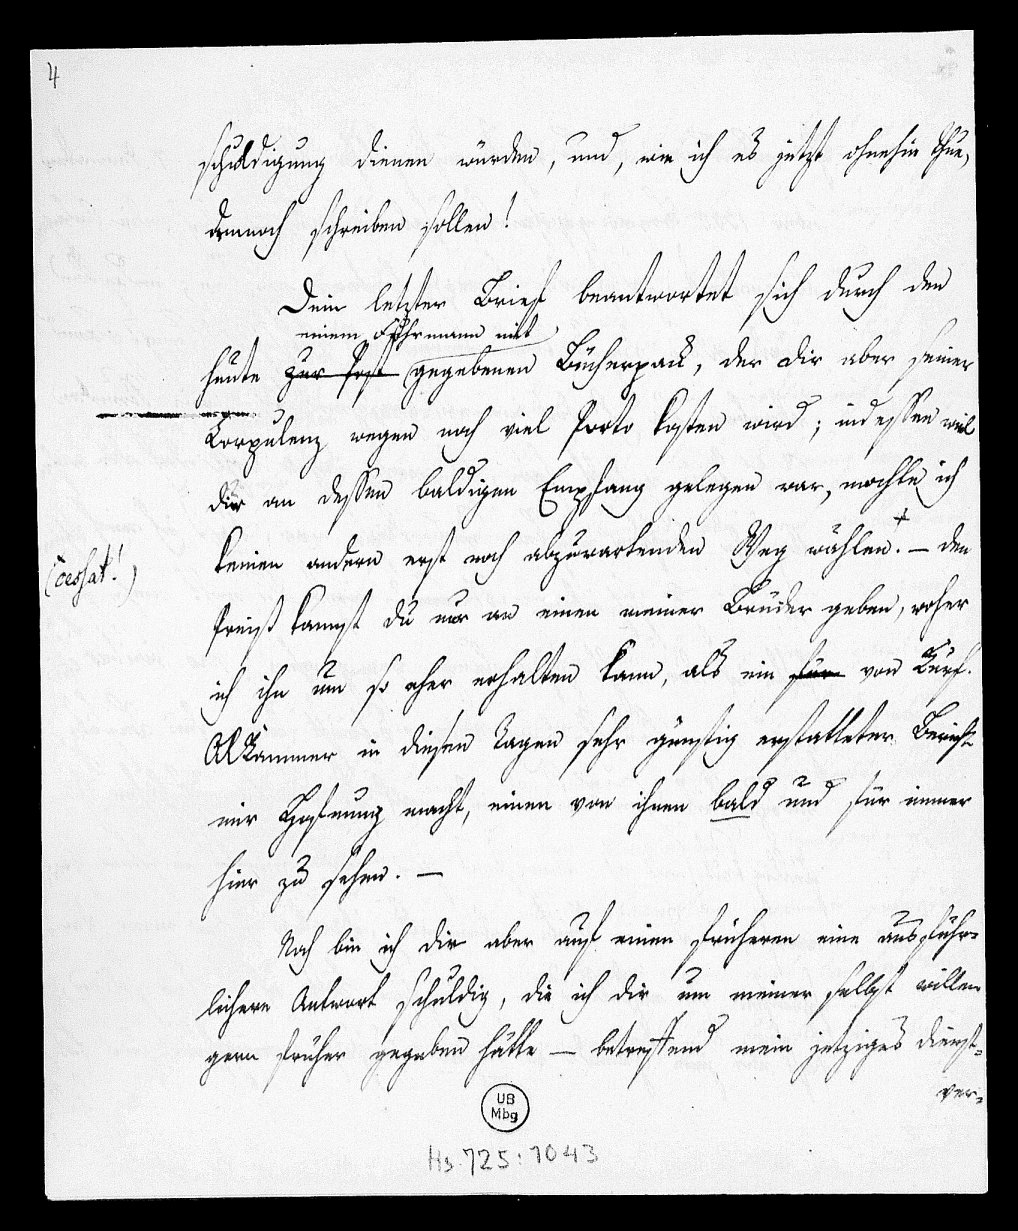 4
schuldigung dienen würden, und, wie ich es jetzt ohnehin thue,
dennoch schreiben sollen!
Dein letzter Brief beantwortet sich durch den
einem Fuhrmann mit
heute zur Post gegebenen Bücherpack, der dir aber seiner
Corpulenz wegen noch viel Porto kosten wird; indessen weil
dir an dessen baldigen Empfang gelegen war, mochte ich
keinen andern erst noch abzuwartenden Weg wählen. + — den
(cessat!)
Preiß kannst du nur an einen meiner Brüder geben, woher
ich ihn um so eher erhalten kann, als ein für von Kurf.
Kammer in diesen Tagen sehr günstig erstatteter Bericht
mir Hofnung macht, einen von ihnen bald und für immer
hier zu sehen. —
Noch bin ich dir aber auf einen früheren eine ausführ-
lichere Antwort schuldig, die ich dir um meiner selbst willen
gern früher gegeben hätte — betreffend mein jetziges Dienst-
ver-
UB
Mbg
Hs. 725:1043